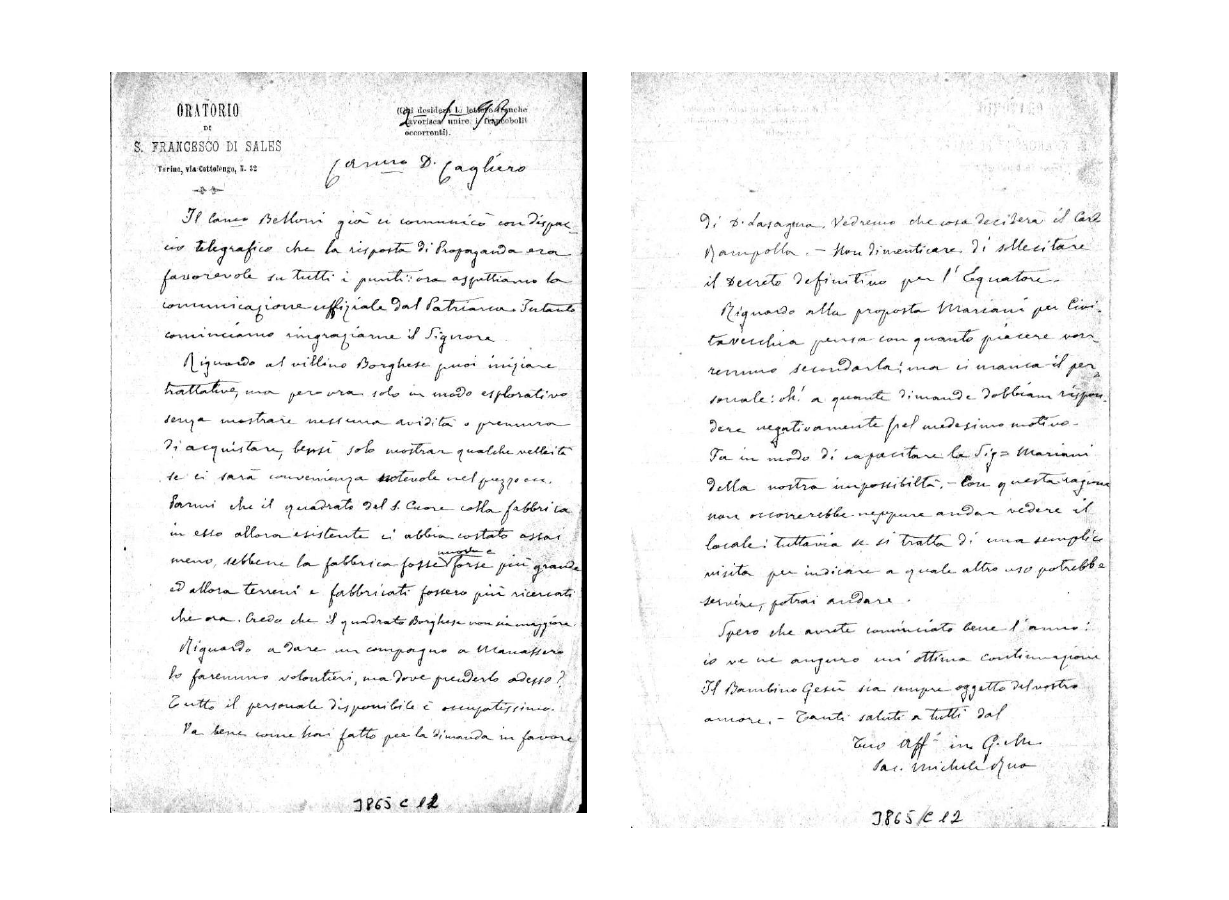 ORATORIO
DI
S. FRANCESCO DI SALES
Torino, via Cottolengo, N. 32
(Chi desidera la lettera franche
favorisca unire i francobolli
occorrenti).
Carmo D. Cagliero
Il Canco Belloni già ci comunicò con dispac-
cio telegrafico che la risposta di Propaganda era
favorevole su tutti i punti: ora aspettiamo la
comunicazione uffiziale dal Patriarca. Intanto
cominciamo ringraziarne il Signore.
Riguardo al villino Borghese puoi iniziare
trattative, ma per ora solo in modo esplorativo
senza mostrare nessuna avidità o premura
di acquistare, bensì solo mostrar qualche velleità
se ci sarà convenienza notevole nel prezzo
Parmi che il quadrato del S. Cuore colla fabbrica
in esso allora esistente ci abbia costato assai
meno, sebbene la fabbrica fosse forse più grande
ed allora terreni e fabbricati fossero più ricercati
che ora. Credo che il quadrato Borghese non sia maggiore.
Riguardo a dare un compagno a Manassero
lo faremmo volontieri, ma dove prenderlo adesso?
Tutto il personale disponibile è occupatissimo.
Va bene come hai fatto per la dimanda in favore
J865 C 12
di D. Lasagna. Vedremo che cosa deciderà il Card
Rampolla. - Non dimenticare di sollecitare
il Decreto definitivo per l'Equatore.
Riguardo alla proposta Mariani per Civi-
tavecchia pensa con quanto piacere vor-
remmo secondarla; ma ci manca il per
sonale: oh! a quante dimande dobbiam rispon-
dere negativamente pel medesimo motivo.
Fa in modo di capacitare la Sig= Mariani
della nostra impossibiltà. - Con questa ragione
non occorrerebbe neppure andar vedere il
locale: tuttavia se si tratta di una semplice
visita per indicare a quale altro uso potrebbe
servire, potrai andare.
Spero che avrete cominciato bene l'anno:
io ve ne auguro un'ottima continuazione
Il Bambino Gesù sia sempre oggetto del vostro
amore. - Tanti saluti a tutti dal
Tuo Aff in G. e M.
Sac. Michele Rua
J865/C 12